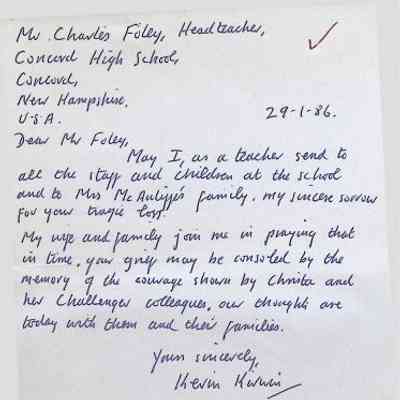 Mr. Charles Foley, Headteacher,
Concord High School,
Concord,
New Hampshire,
U.S.A.
29-1-86.
Dear Mr Foley,
May I, as a teacher send to
all the staff and children at the school
and to Mrs McAuliffe's family, my sincere sorrow
for your tragic loss.
My wife and family join me in praying that
in time, your grief may be consoled by the
memory of the courage shown by Christa and
her Challenger colleagues, our thoughts are
today with them and their families.
Yours sincerely,
Kevin Kirwin